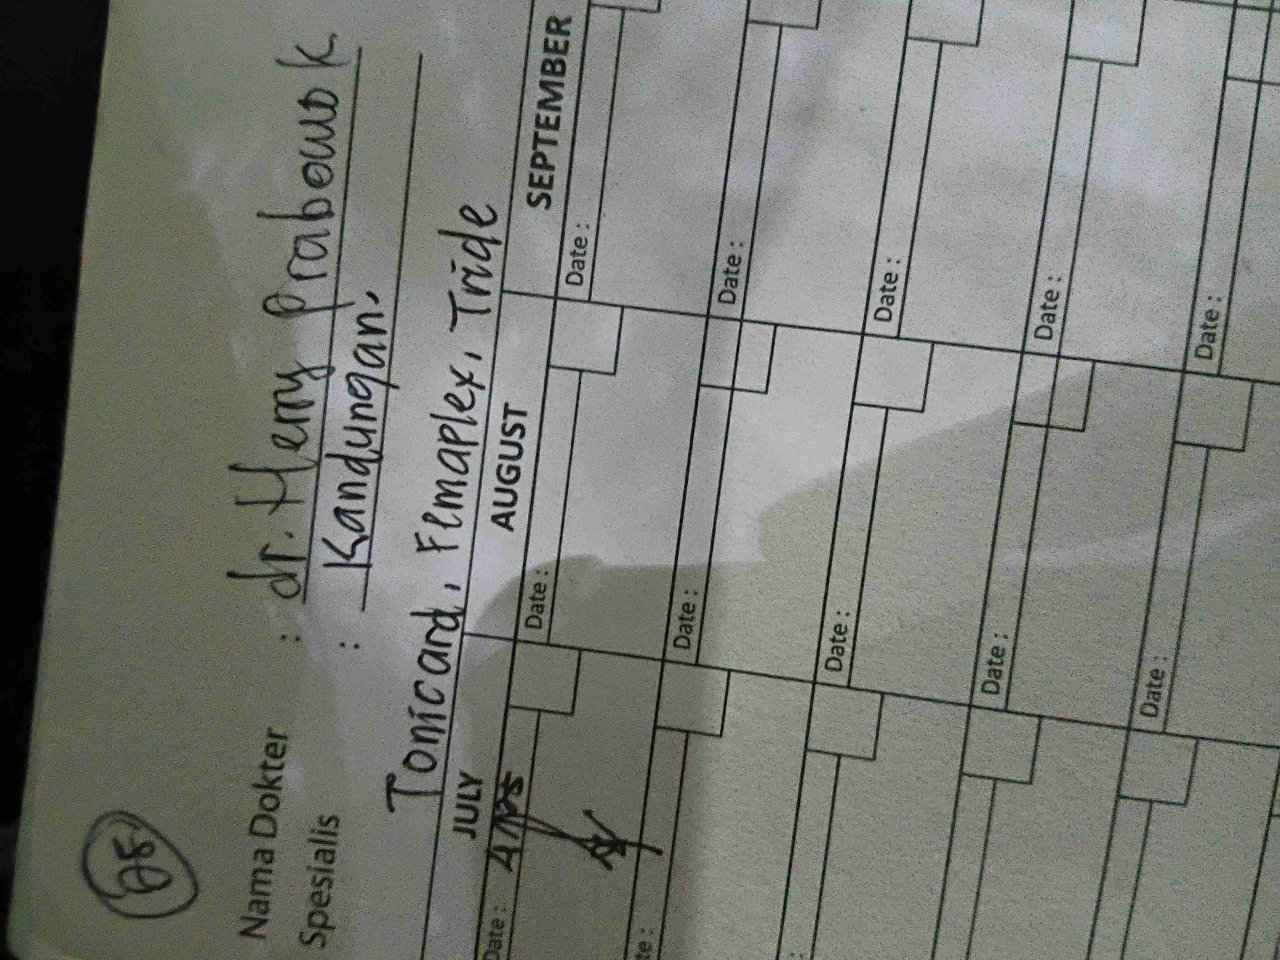 28
Nama Dokter : dr. Henny Prabowo K
Spesialis : Kandungan.
Tonicard, Femaplex, Tride
JULY AUGUST SEPTEMBER
Date : Date : Date :
Date : Date :
Date : Date :
Date : Date :
Date : Date :